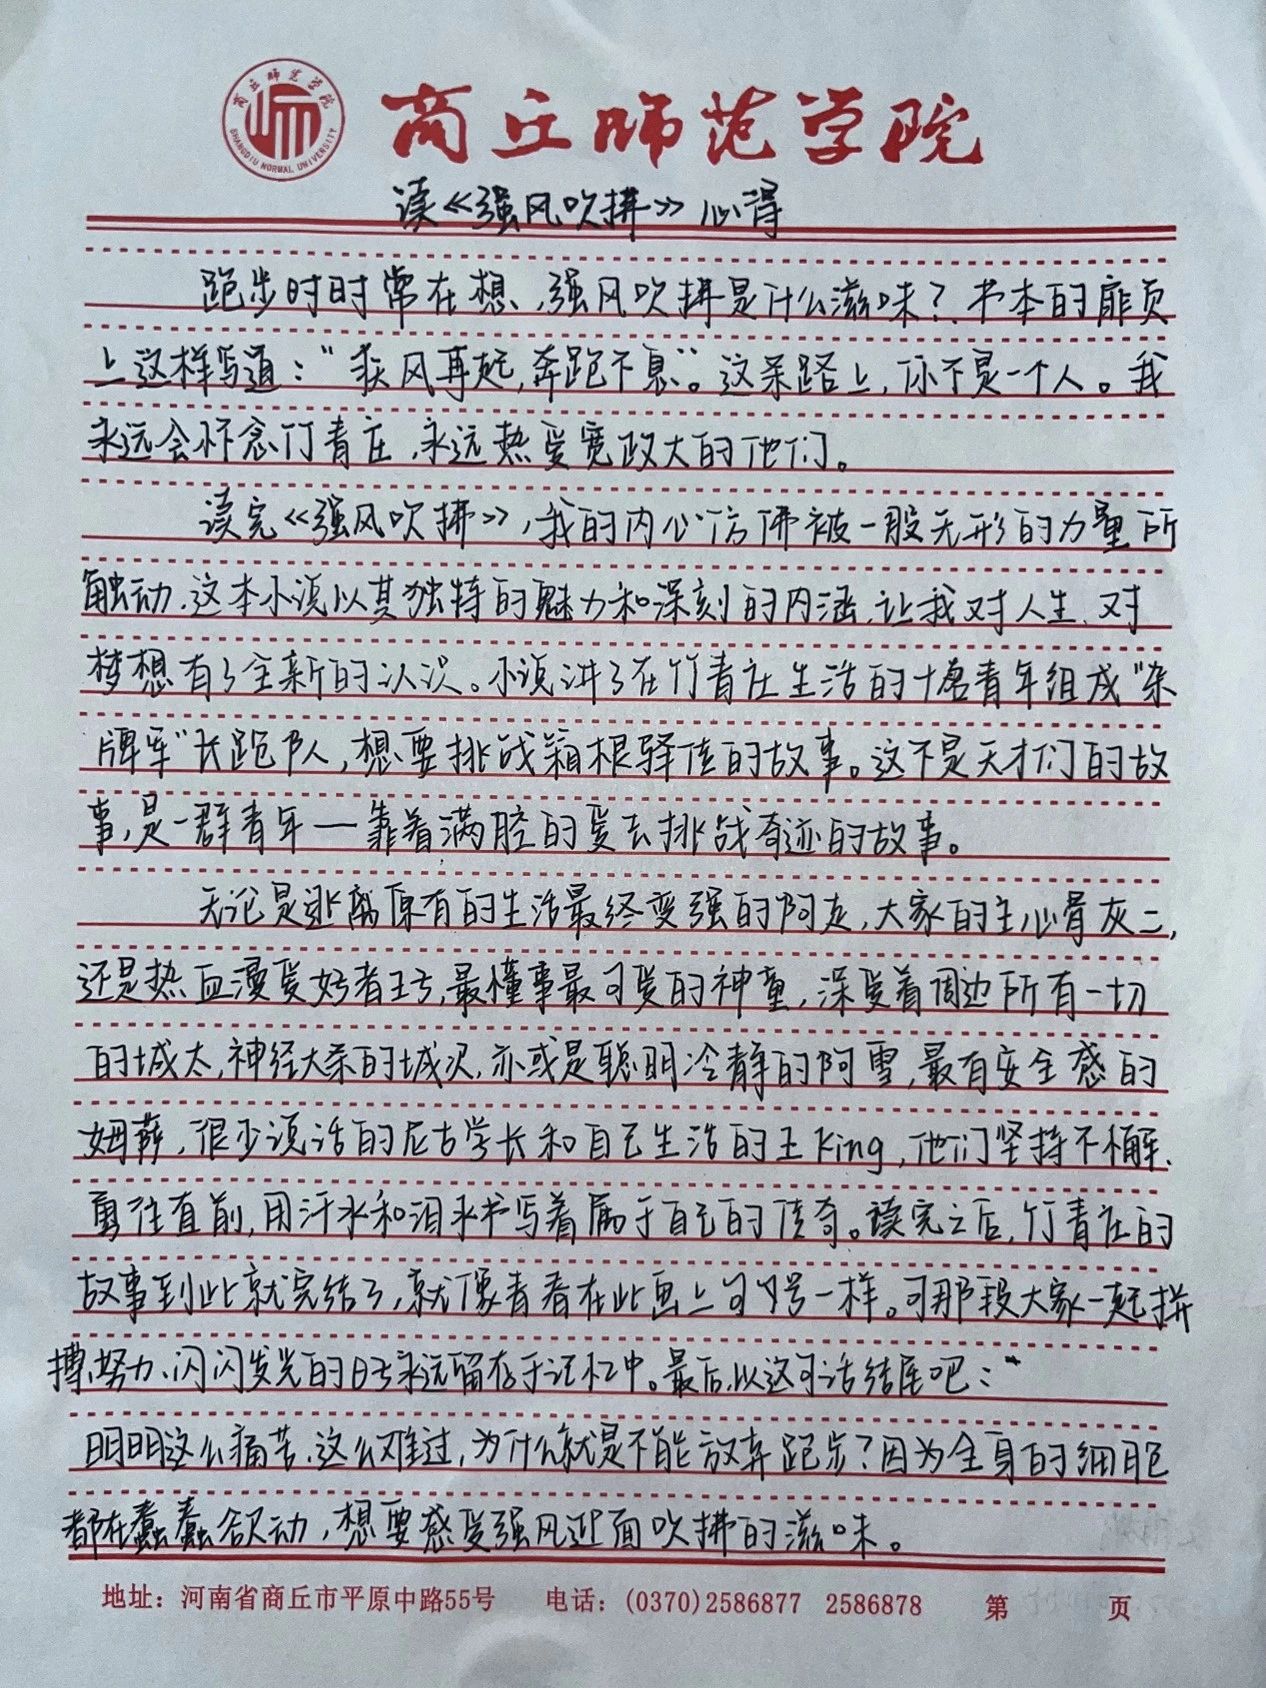 商丘师范学院
SHANGQIU NORMAL UNIVERSITY
商丘师范学院
读《强风吹拂》心得
跑步时时常在想、强风吹拂是什么滋味？书本的扉页
上这样写道：“乘风再起，奔跑不息”。这条路上，你不是一个人。我
永远会怀念竹青庄，永远热爱宽政大的他们。
读完《强风吹拂》，我的内心仿佛被一股无形的力量所
触动、这本小说以其独特的魅力和深刻的内涵、让我对人生、对
梦想有了全新的认识。小说讲了在竹青庄生活的十名青年组成“杂
牌军”长跑队，想要挑战箱根驿传的故事。这不是天才们的故
事，是一群青年—靠着满腔的爱去挑战奇迹的故事。
无论是逃离原有的生活最终变强的阿走，大家的主心骨灰二，
还是热血漫爱好者王子，最懂事最可爱的神童，深爱着周边所有一切
的城太，神经大条的城次，亦或是聪明冷静的阿雪，最有安全感的
姆萨，很少说话的尼古学长和自己生活的王King，他们坚持不懈、
勇往直前，用汗水和泪水书写着属于自己的传奇。读完之后，竹青庄的
故事到此就完结了，就像青春在此画上句号一样。可那段大家一起拼
搏、努力、闪闪发光的日子永远留存于记忆中。最后，以这句话结尾吧：“
明明这么痛苦、这么难过，为什么就是不能放弃跑步？因为全身的细胞
都在蠢蠢欲动，想要感受强风迎面吹拂的滋味。
地址：河南省商丘市平原中路55号 电话：(0370)2586877 2586878 第 页